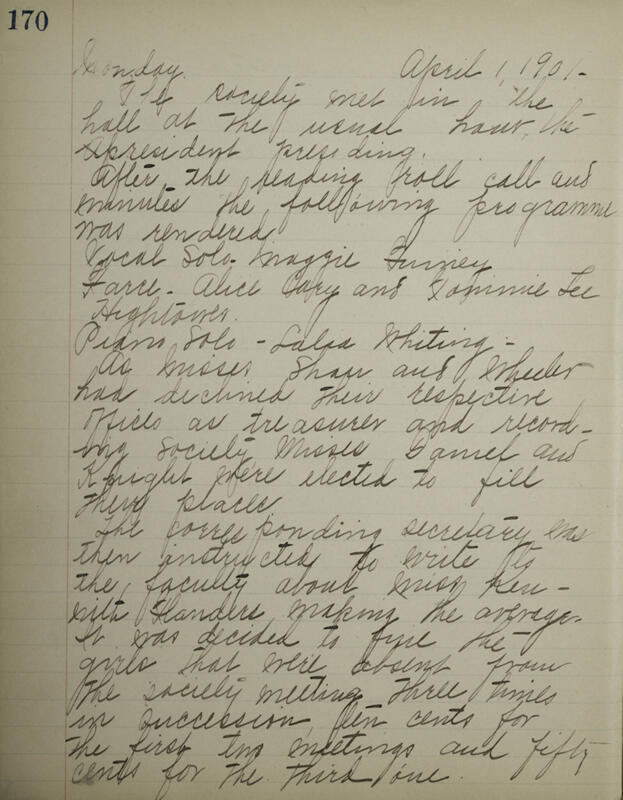 170
Monday. April 1, 1901-
The society met in the
hall at the usual hour, the
president presiding.
After the reading roll call and
minutes the following programme
was rendered
Vocal Solo- Maggie Furney
Farce- Alice Cary and Tommie Lee
Hightower.
Piano Solo - Lalsa Whiting-
As Misses Shaw and Wheeler
had declined their respective
offices as treasurer and record-
ing Society Misses Daniel and
Knight were elected to fill
there places.
The corresponding secretary was
then instructed to write to
the faculty about Miss
Flanders making the average.
It was decided to fine the
girls that were absent from
the society meeting three times
in succession, ten cents for
the first two meetings and fifty
cents for the third one.